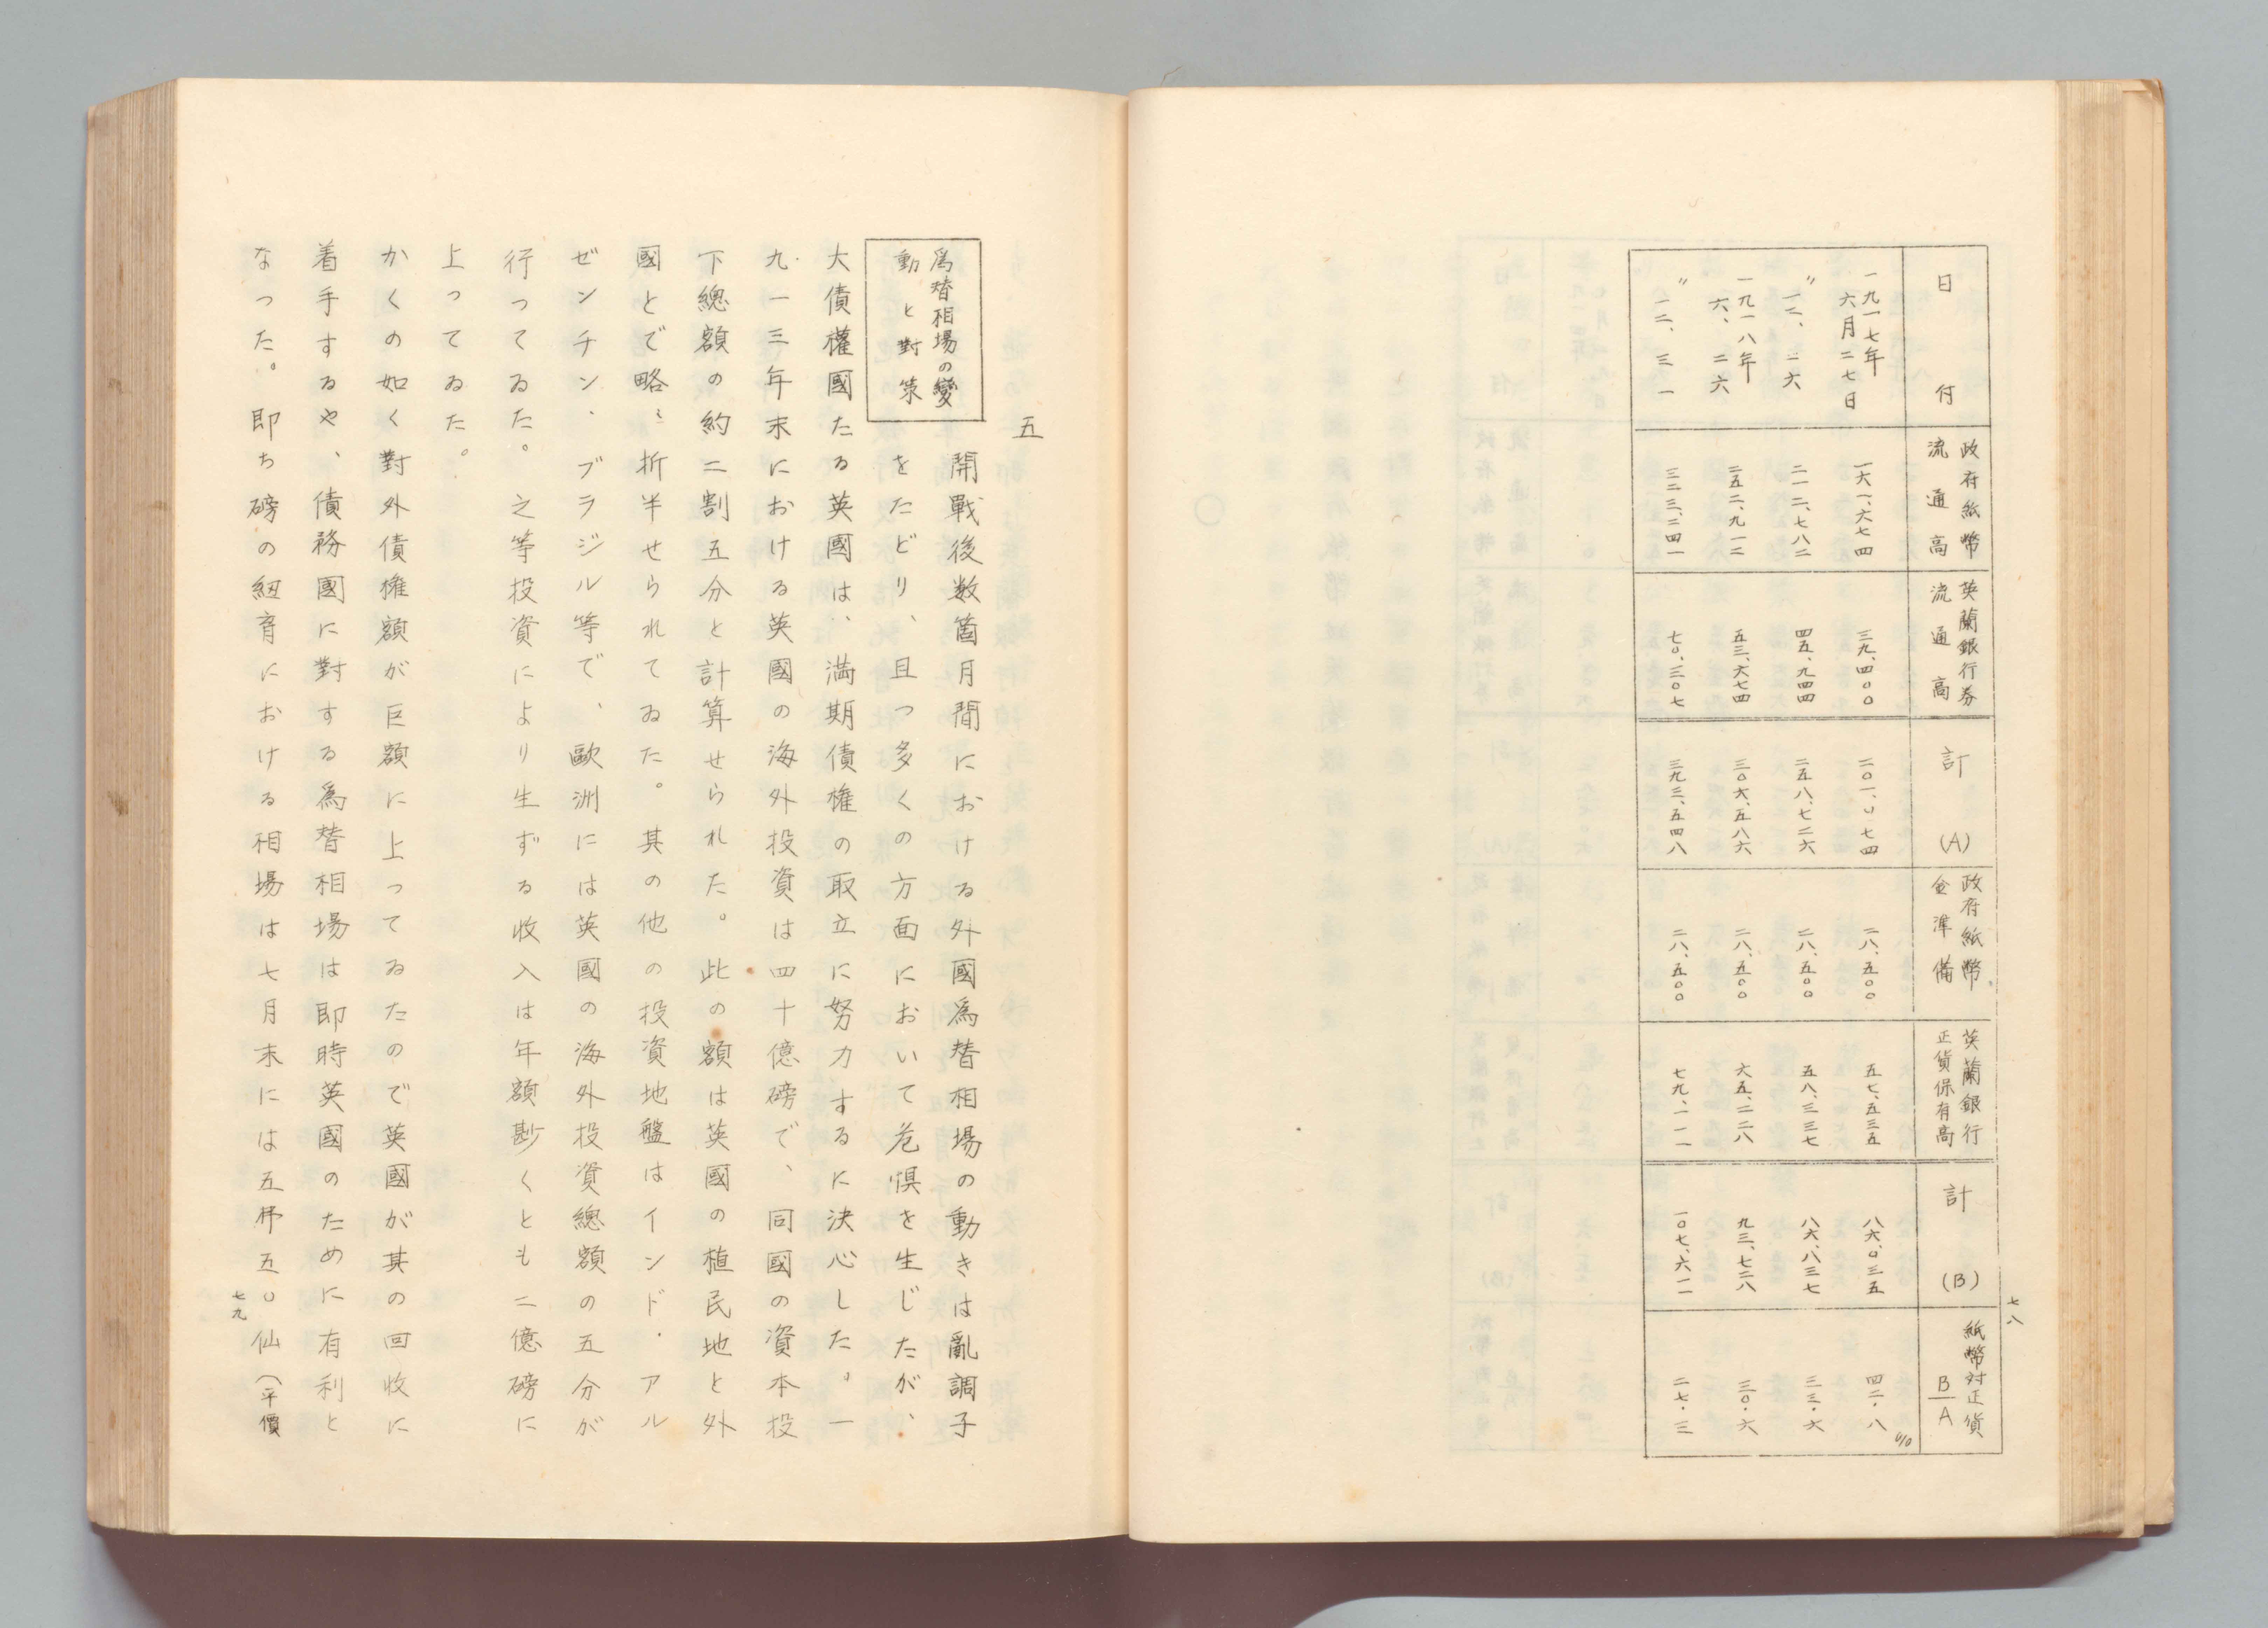 七八
日付
政府紙幣
流通高
英蘭銀行券
流通高
計(A)
政府紙幣
金準備
英蘭銀行
正貨保有高
計(B)
紙幣対正貨
B/A
一九一七年
六月二七日
一六一、六七四
三九、四〇〇
二〇一、〇七四
二八、五〇〇
五七、五三五
八六、〇三五
四二・八%
〃一二、二六
二一二、七八二
四五、九四四
二五八、七二六
二八、五〇〇
五八、三三七
八六、八三七
三三・六
一九一八年
六、二六
二五二、九一二
五三、六七四
三〇六、五八六
二八、五〇〇
六五、二二八
九三、七二八
三〇・六
〃一二、三一
三二三、二四一
七〇、三〇七
三九三、五四八
二八、五〇〇
七九、一一一
一〇七、六一一
二七・三
五
爲替相場の變
動と對策
開戰後数箇月間における外國爲替相場の動きは亂調子
をたどり、且つ多くの方面において危惧を生じたが、
大債權國たる英國は、満期債権の取立に努力するに決心した。一
九一三年末における英國の海外投資は四十億磅で、同國の資本投
下總額の約二割五分と計算せられた。此の額は英國の植民地と外
國とで略〻折半せられてゐた。其の他の投資地盤はインド・アル
ゼンチン、ブラジル等で、歐洲には英國の海外投資總額の五分が
行つてゐた。之等投資により生ずる收入は年額尠くとも二億磅に
上つてゐた。
かくの如く對外債権額が巨額に上つてゐたので英國が其の回收に
着手するや、債務國に對する爲替相場は即時英國のために有利と
なつた。即ち磅の紐育における相場は七月末には五弗五〇仙(平價
七九